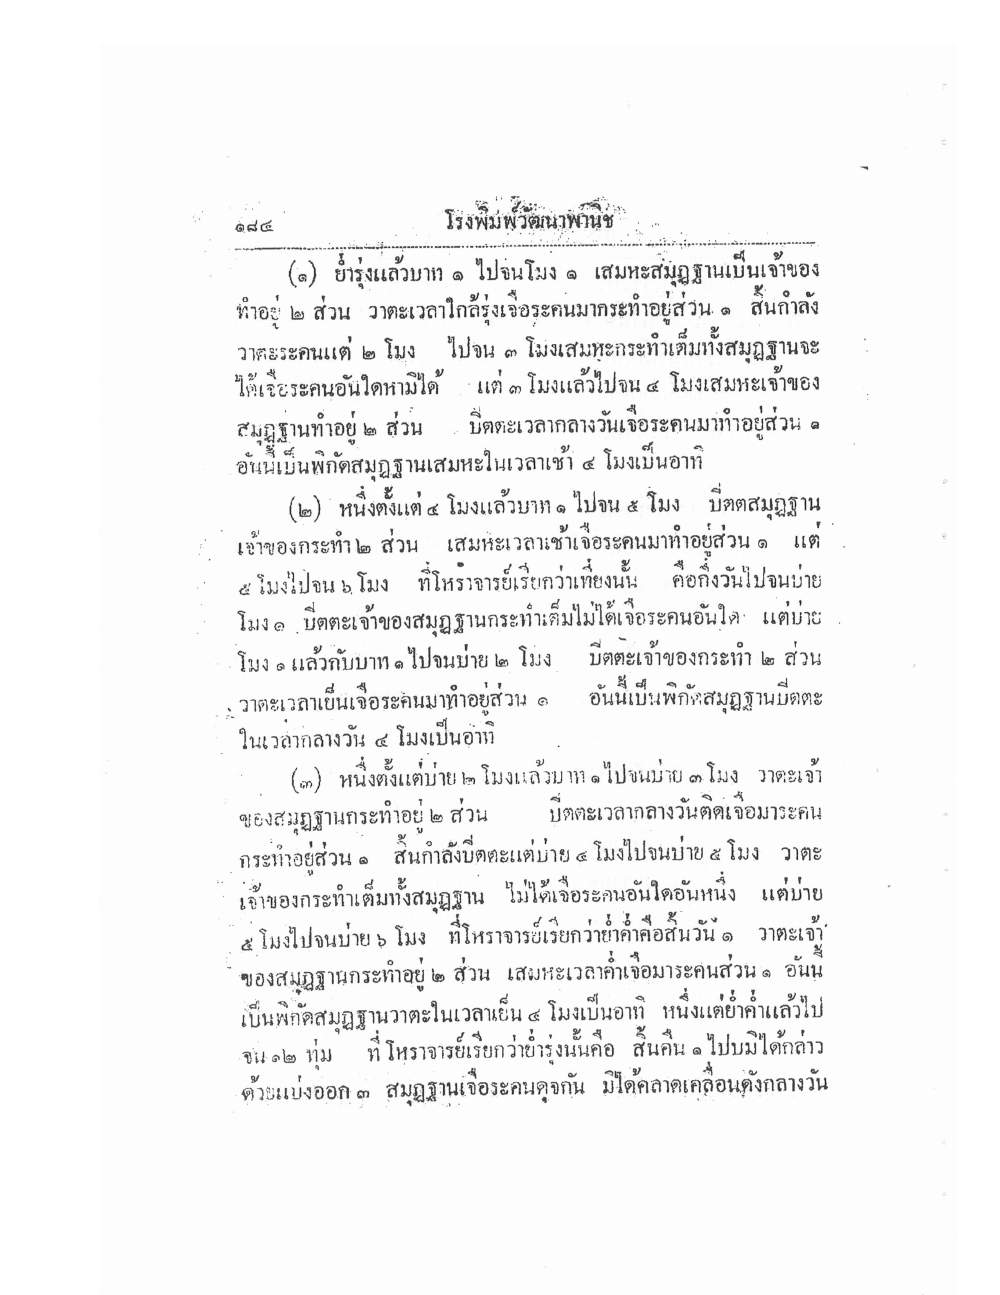 ๑๘๔ โรงพิมพ์วัฒนาพานิช
(๑) ย่ำรุ่งแล้วบาท ๑ ไปจนโมง ๑ เสมหะสมุฏฐานเป็นเจ้าของ
ทำอยู่ ๒ ส่วน วาตะเวลาใกล้รุ่งเจือระคนมากระทำอยู่ส่วน ๑ สิ้นกำลัง
วาตะระคนแต่ ๒ โมง ไปจน ๓ โมงเสมหะกระทำเต็มทั้งสมุฏฐานจะ
ได้เจือระคนอันใดหามิได้ แต่ ๓ โมงแล้วไปจน ๔ โมงเสมหะเจ้าของ
สมุฏฐานทำอยู่ ๒ ส่วน บิตตะเวลากลางวันเจือระคนมาทำอยู่ส่วน ๑
อันนี้เป็นพิกัดสมุฏฐานเสมหะในเวลาเช้า ๔ โมงเป็นอาทิ
(๒) หนึ่งตั้งแต่ ๔ โมงแล้วบาท ๑ ไปจน ๕ โมง บิ่ตตสมุฏฐาน
เจ้าของกระทำ ๒ ส่วน เสมหะเวลาเช้าเจือระคนมาทำอยู่ส่วน ๑ แต่
๕ โมงไปจน ๖ โมง ที่โหราจารย์เรียกว่าเที่ยงนั้น คือกึ่งวันไปจนบ่าย
โมง ๑ บิ่ตตะเจ้าของสมุฏฐานกระทำเต็มไม่ได้เจือระคนอันใด แต่บ่าย
โมง ๑ แล้วกับบาท ๑ ไปจนบ่าย ๒ โมง บิตตะเจ้าของกระทำ ๒ ส่วน
วาตะเวลาเย็นเจือระคนมาทำอยู่ส่วน ๑ อันนี้เป็นพิกัดสมุฏฐานบิตตะ
ในเวลากลางวัน ๔ โมงเป็นอาทิ
(๓) หนึ่งตั้งแต่บ่าย ๒ โมงแล้วบาท ๑ ไปจนบ่าย ๓ โมง วาตะเจ้า
ของสมุฏฐานกระทำอยู่ ๒ ส่วน บิ่ตตะเวลากลางวันติดเจือมาระคน
กระทำอยู่ส่วน ๑ สิ้นกำลังบิ่ตตะแต่บ่าย ๔ โมงไปจนบ่าย ๕ โมง วาตะ
เจ้าของกระทำเต็มทั้งสมุฏฐาน ไม่ได้เจือระคนอันใดอันหนึ่ง แต่บ่าย
๕ โมงไปจนบ่าย ๖ โมง ที่โหราจารย์เรียกว่าย่ำค่ำคือสิ้นวัน ๑ วาตะเจ้า
ของสมุฏฐานกระทำอยู่ ๒ ส่วน เสมหะเวลาค่ำเจือมาระคนส่วน ๑ อันนี้
เป็นพิกัดสมุฏฐานวาตะในเวลาเย็น ๔ โมงเป็นอาทิ หนึ่งแต่ย่ำค่ำแล้วไป
จน ๑๒ ทุ่ม ที่โหราจารย์เรียกว่าย่ำรุ่งนั้นคือ สิ้นคืน ๑ ไปบมิได้กล่าว
ด้วยแบ่งออก ๓ สมุฏฐานเจือระคนดุจกัน มิได้คลาดเคลื่อนดังกลางวัน